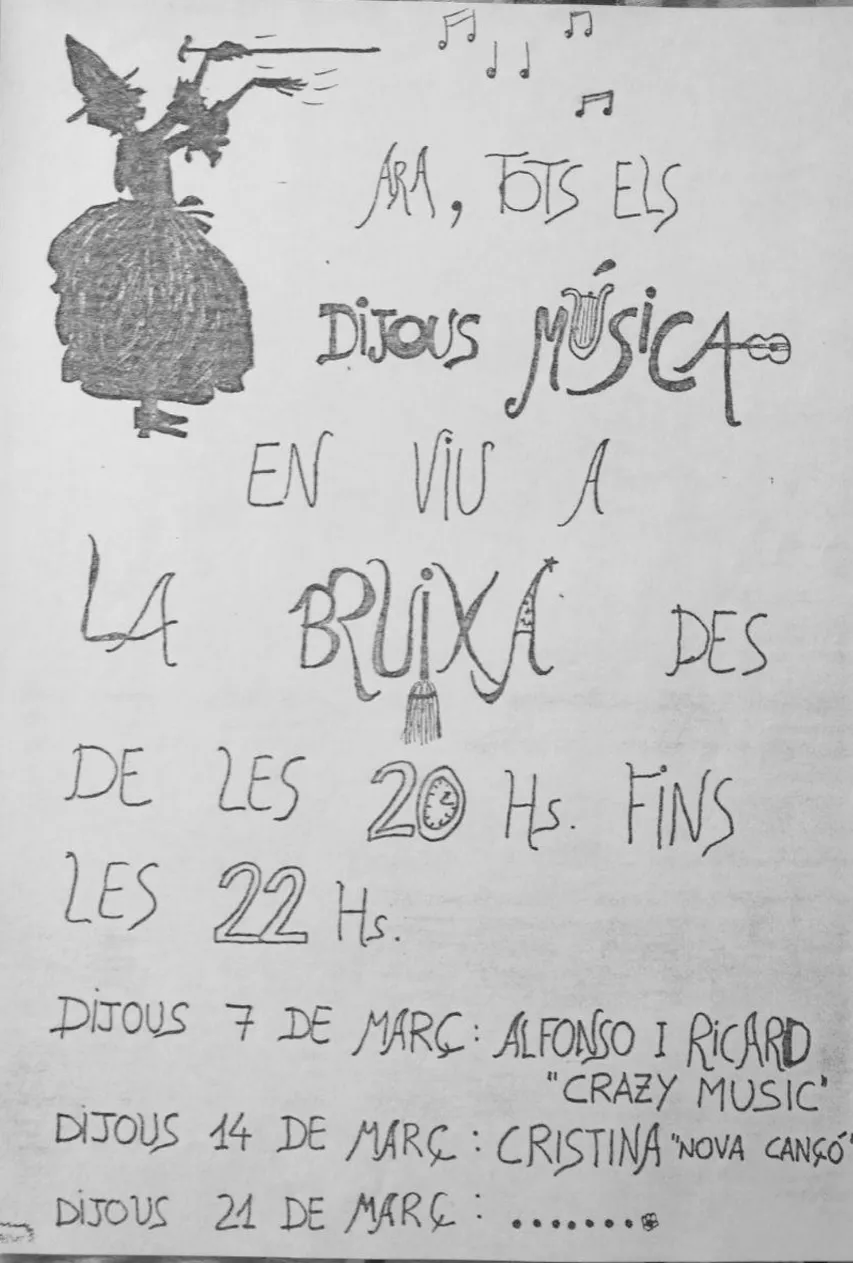 ARA, TOTS ELS
DIJOUS MÚSICA
EN VIU A
LA BRUIXA DES
DE LES 20 Hs. FINS
LES 22 Hs.
DIJOUS 7 DE MARÇ: ALFONSO I RICARD
"CRAZY MUSIC"
DIJOUS 14 DE MARÇ: CRISTINA "NOVA CANÇÓ"
DIJOUS 21 DE MARÇ: ........